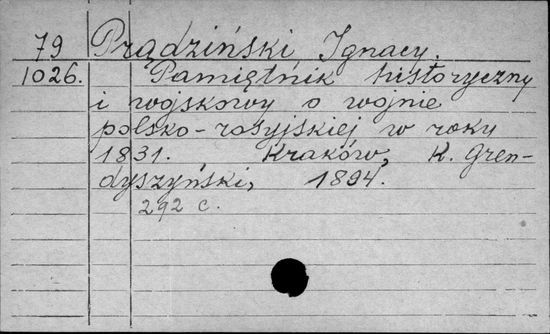 79 Prądziński Ignacy.
1026. Pamiętnik historyczny
i wojskowy o wojnie
polsko-rosyjskiej w roku
1831. Kraków, K. Gren-
dyszyński, 1894.
292 c.